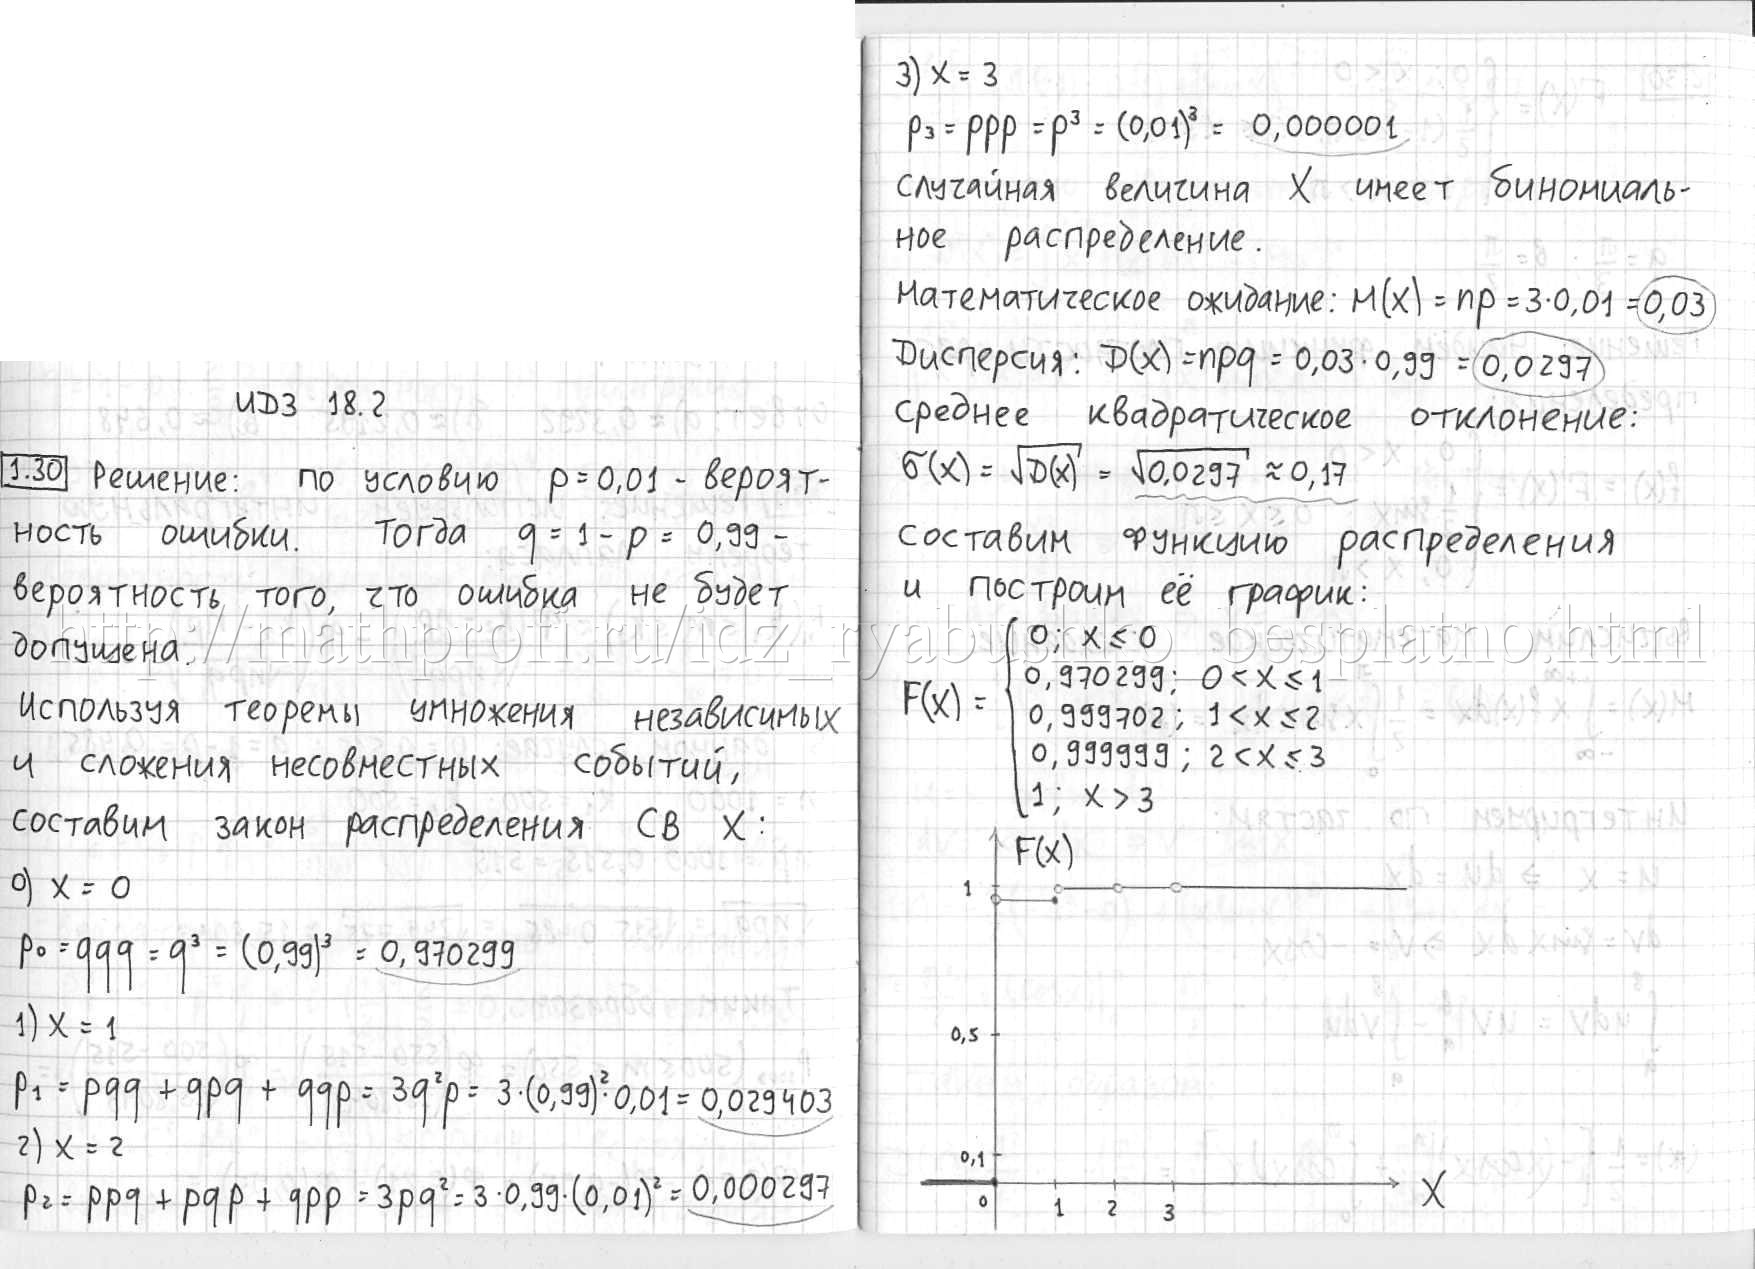 ИДЗ 18.2
1.30 Решение: по условию p = 0,01 - вероят-
ность ошибки. Тогда q = 1 - p = 0,99 -
вероятность того, что ошибка не будет
допущена.
Используя теоремы умножения независимых
и сложения несовместных событий,
составим закон распределения СВ X:
0) X = 0
p₀ = qqq = q³ = (0,99)³ = 0,970299
1) X = 1
p₁ = pqq + qpq + qqp = 3q²p = 3·(0,99)²·0,01 = 0,029403
2) X = 2
p₂ = ppq + pqp + qpp = 3pq² = 3·0,99·(0,01)² = 0,000297
3) X = 3
p₃ = ppp = p³ = (0,01)³ = 0,000001
Случайная величина X имеет биномиаль-
ное распределение.
Математическое ожидание: M(X) = np = 3·0,01 = 0,03
Дисперсия: D(X) = npq = 0,03·0,99 = 0,0297
Среднее квадратическое отклонение:
σ(X) = √D(X) = √0,0297 ≈ 0,17
Составим функцию распределения
и построим её график:
http://mathprofi.ru/idz_ryabushko_besplatno.html
F(X) = {
0; X ≤ 0
0,970299; 0 < X ≤ 1
0,999702; 1 < X ≤ 2
0,999999; 2 < X ≤ 3
1; X > 3
F(X)
1
0,5
0,1
0 1 2 3 X